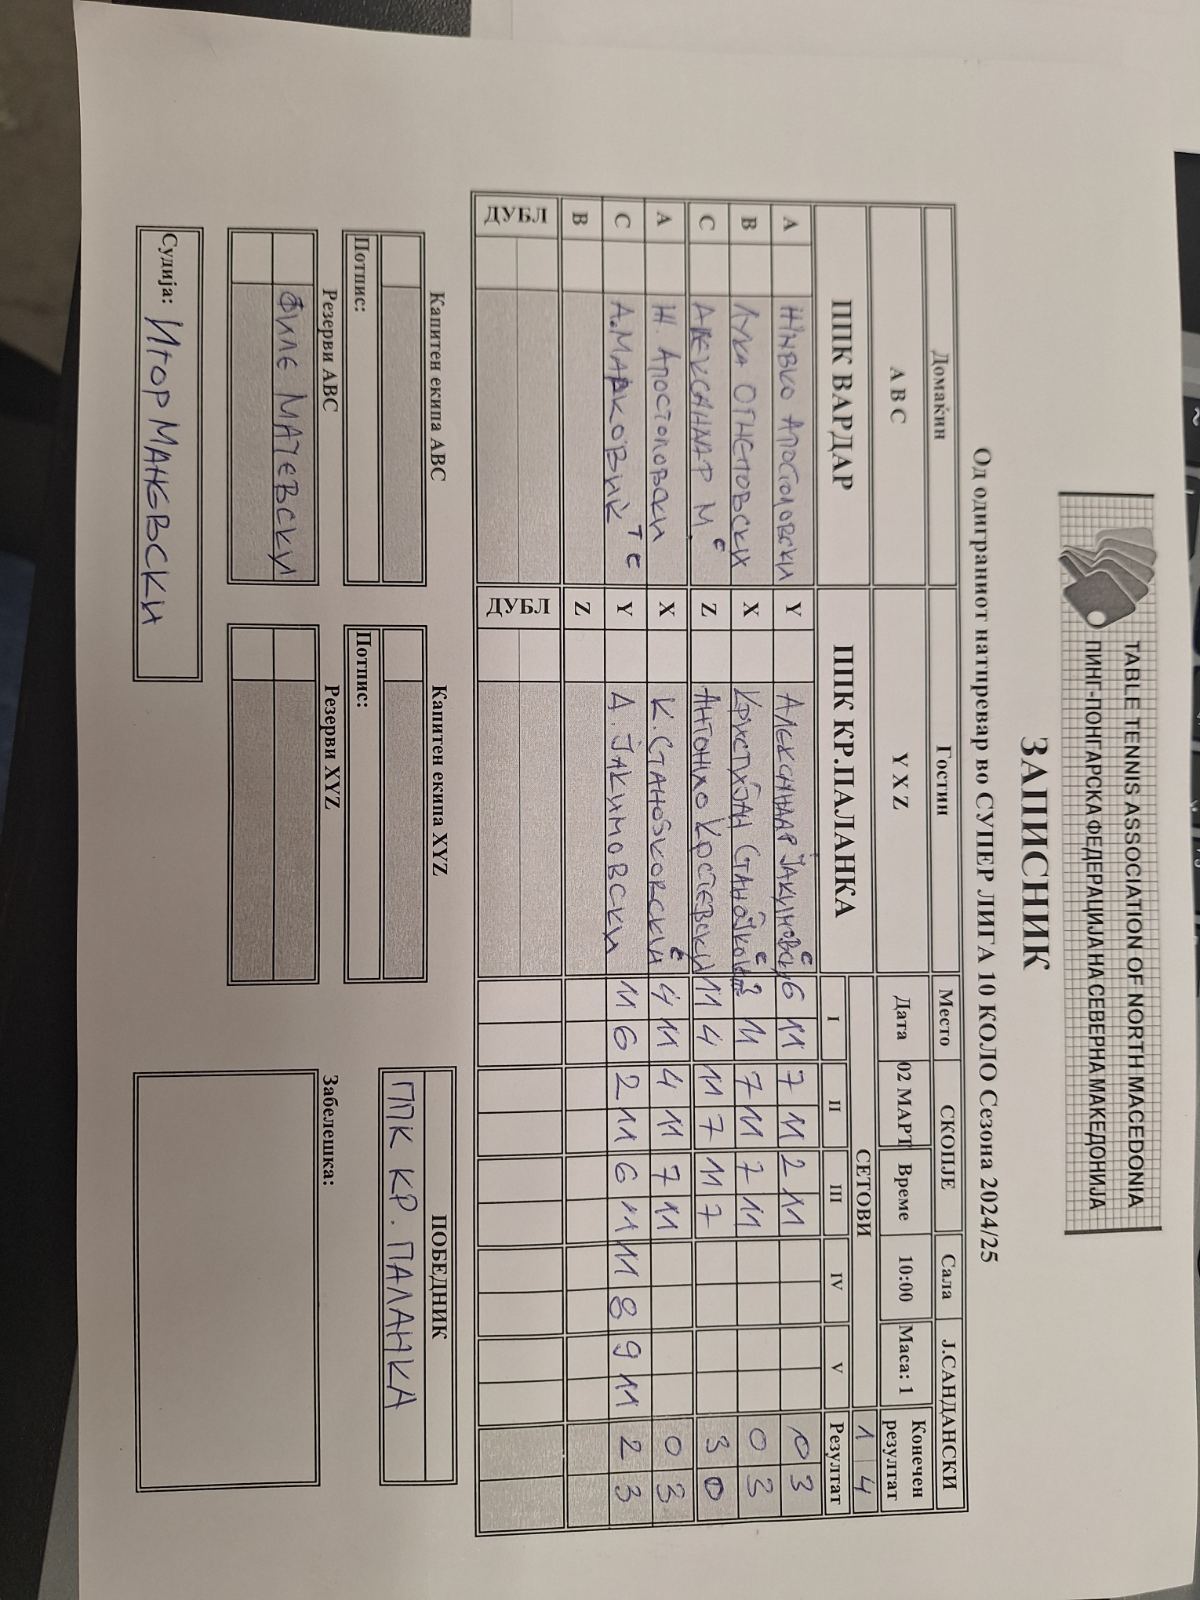 TABLE TENNIS ASSOCIATION OF NORTH MACEDONIA
ПИНГ-ПОНГАРСКА ФЕДЕРАЦИЈА НА СЕВЕРНА МАКЕДОНИЈА
ЗАПИСНИК
Од одиграниот натпревар во СУПЕР ЛИГА 10 КОЛО Сезона 2024/25
Домаќин Гостин Место СКОПЈЕ Сала Ј.САНДАНСКИ
A B C Y X Z Дата 02 МАРТ Време 10:00 Маса: 1 Конечен резултат
ППК ВАРДАР ППК КР.ПАЛАНКА СЕТОВИ 1 4
I II III IV V Резултат
A ЖИВКО АПОСТОЛОВСКИ Y АЛЕКСАНДАР ЈАКИМОВСКИ 6 11 7 11 2 11 0 3
B ЛУКА ОГНЕНОВСКИ X КРИСТИЈАН 3 11 7 11 7 11 0 3
C АЛЕКСАНДАР М. Z АНТОНИО КРСТЕВСКИ 11 4 11 7 11 7 3 0
A Ж. АПОСТОЛОВСКИ X К. СТАНОЈКОВСКИ 4 11 4 11 7 11 0 3
C А. МАРКОВИЌ Y А. ЈАКИМОВСКИ 11 6 2 11 6 11 11 8 9 11 2 3
B Z
ДУБЛ ДУБЛ
Капитен екипа ABC Капитен екипа XYZ ПОБЕДНИК
Потпис: Потпис: ППК КР. ПАЛАНКА
Резерви ABC Резерви XYZ Забелешка:
ФИЛЕ МАТЕВСКИ
Судија: ИГОР МАНЕВСКИ